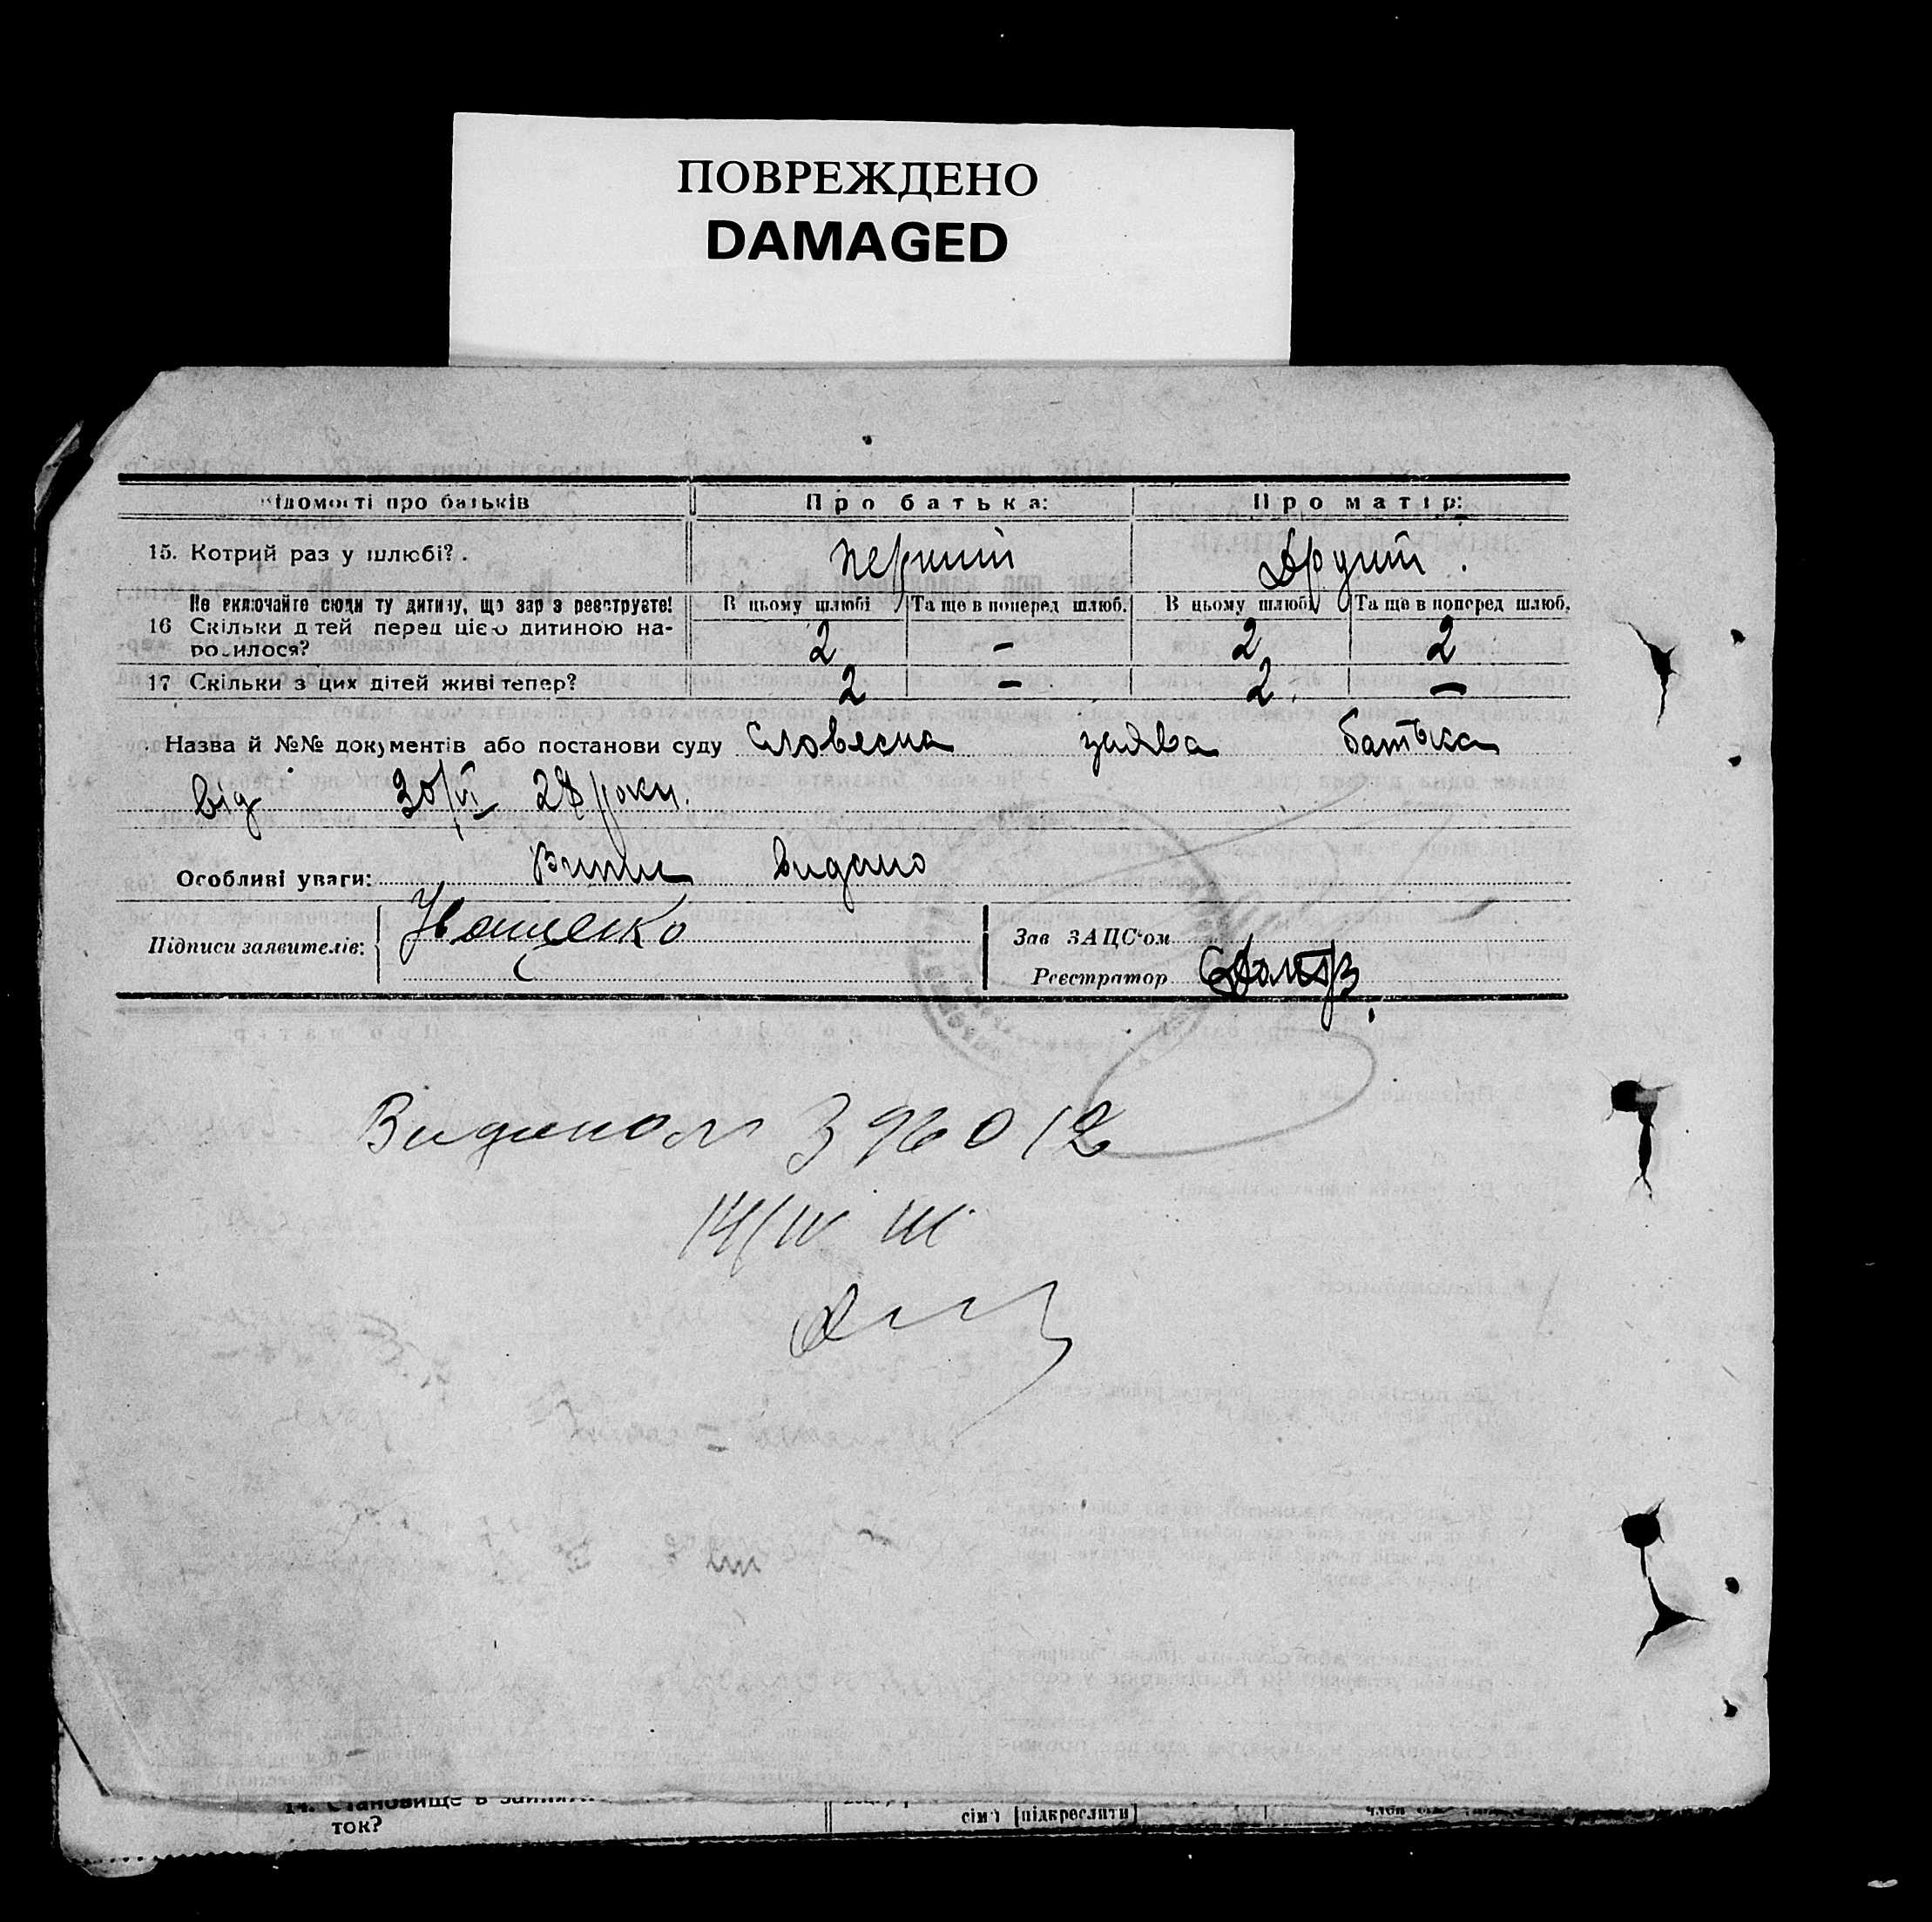 ПОВРЕЖДЕНО
DAMAGED
ідомості про батьків Про батька: Про матір:
15. Котрий раз у шлюбі? . перший другий .
Не включайте сюди ту дитину, що зар з реєструєте! В цьому шлюбі Та ще в поперед шлюб. В цьому шлюбі Та ще в поперед шлюб.
16 Скільки д тей перед цією дитиною на-
ро илося? 2 – 2 2
17 Скільки з цих дітей живі тепер? 2 – 2 –
Назва й №№ документів або постанови суду Словесна заява батька
від 20/VI 28 року.
Особливі уваги: видано
Підписи заявителів: Іващенко Зав ЗАЦС'ом
Реєстратор
Видано 396012
14/IV
14. Становище в
ток? сім'ї [підкреслити]